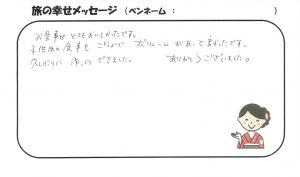 旅の幸せメッセージ (ペンネーム： )
お食事が とてもおいしかったです。
子供用の食事も ごうかで ボリュームがあって良かったです。
久しぶりに ゆっくりできました。 ありがとうございました。